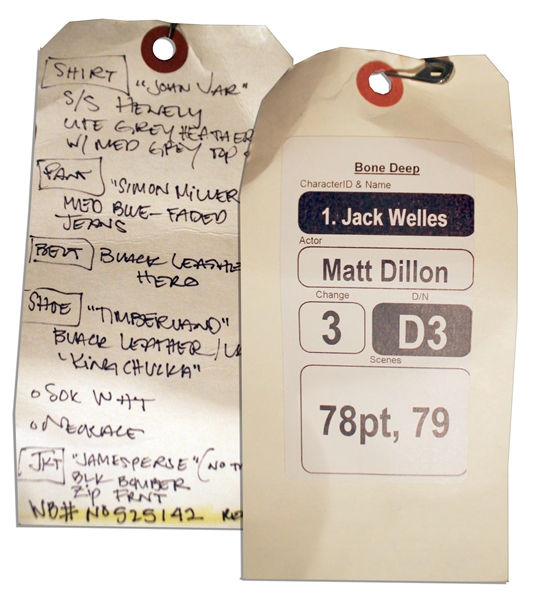 SHIRT "JOHN VAR"
S/S HENELY
LITE GREY HEATHER
W/ MED GREY TOP
PANT "SIMON MILLER
MED BLUE-FADED
JEANS
BELT BLACK LEATHE
HERO
SHOE "TIMBERLAND"
BLACK LEATHER/
"KING CHUKKA"
o SOK WHT
o NECKLACE
JKT "JAMESPERSE" (NO T
BLK BOMBER
ZIP FRNT
WB# NB525142
Bone Deep
CharacterID & Name
1. Jack Welles
Actor
Matt Dillon
Change D/N
3 D3
Scenes
78pt, 79